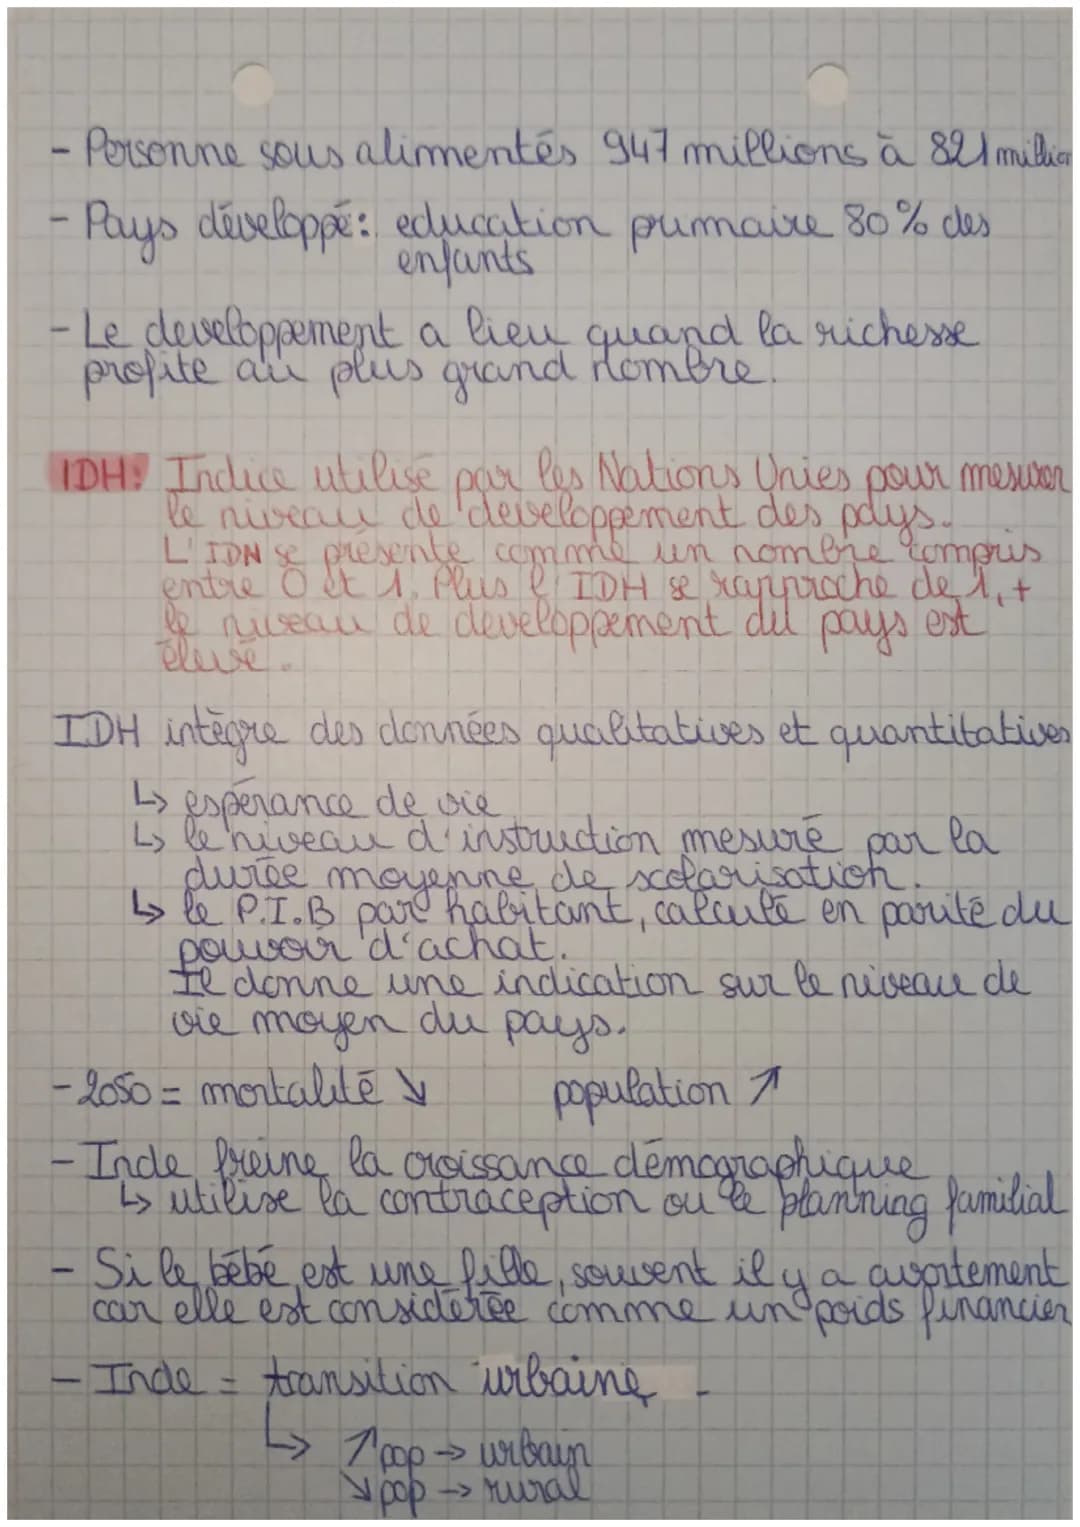 - Personne sous alimentés 947 millions à 821 million
- Pays développé: education primaire 80% des
enfants
- Le developpement a lieu quand la richesse
profite au plus grand nombre.
IDH: Indice utilisé par les Nations Unies pour mesurer
le niveau de developpement des pays.
L'IDN se présente comme un nombre compris
entre 0 et 1. Plus l'IDH se rapproche de 1, +
le niveau de developpement du pays est
élevé.
IDH intègre des données qualitatives et quantitatives
↳ espérance de vie
↳ le niveau d'instruction mesuré par la
durée moyenne de scolarisation.
↳ le P.I.B par habitant, calculé en parité du
pouvoir d'achat.
Il donne une indication sur le niveau de
vie moyen du pays.
- 2050 = mortalité ↘ population ↗
- Inde freine la croissance démographique
↳ utilise la contraception ou le planning familial
- Si le bébé est une fille, souvent il y a avortement
car elle est considérée comme un poids financier
- Inde = transition urbaine -
↳ ↗pop → urbain
↘pop → rural